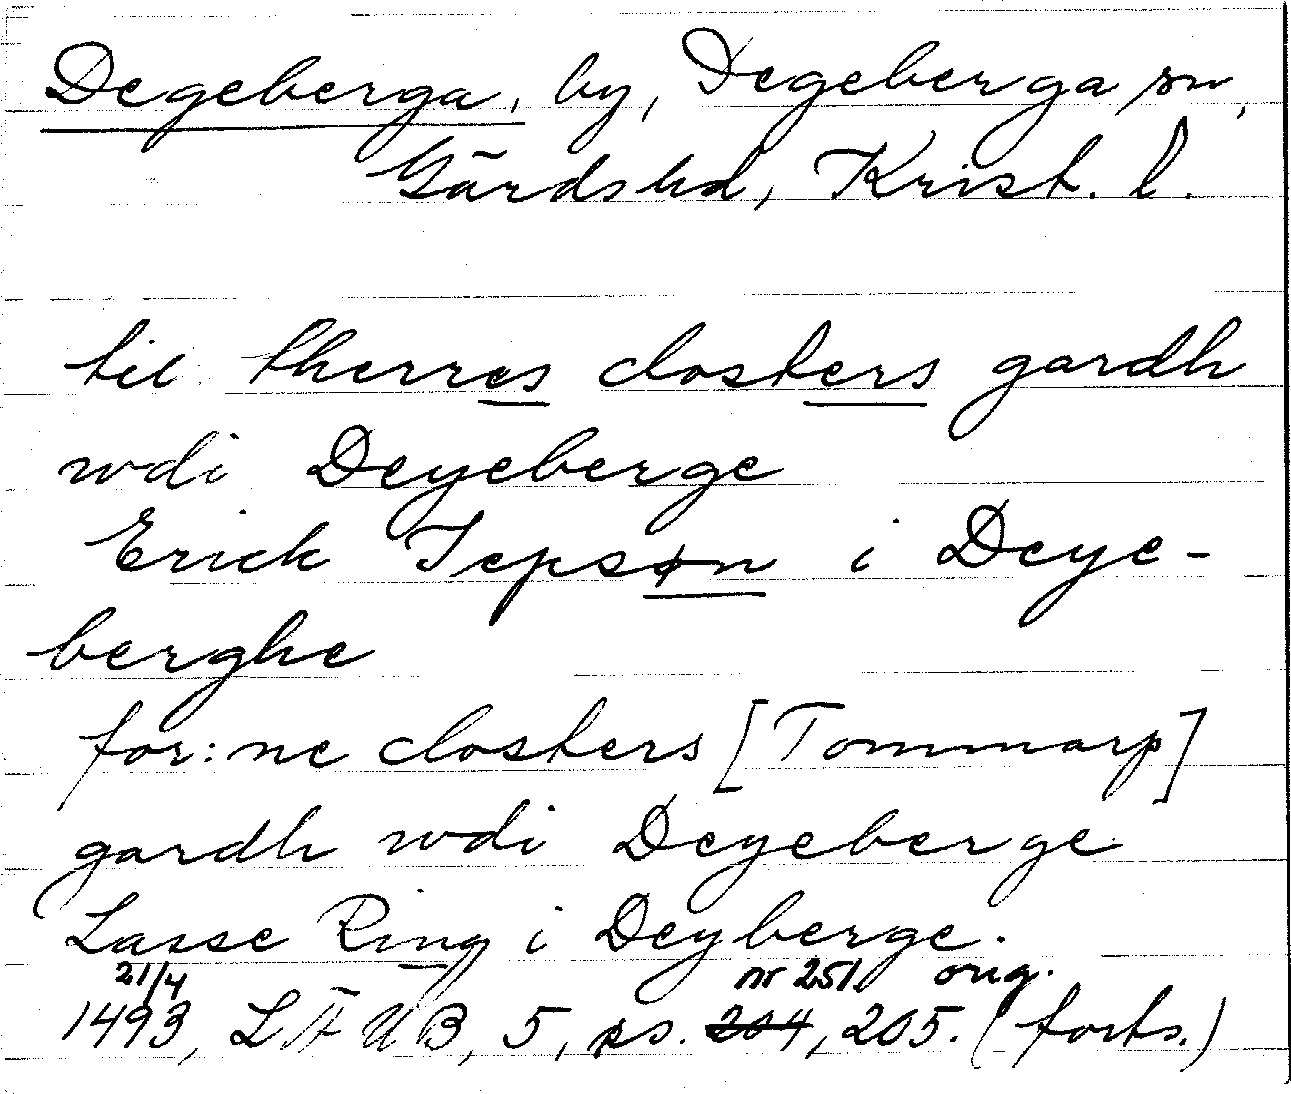 Degeberga, by, Degeberga sn,
Gärds hd, Krist. l.
til therres closters gardh
wdi Deyeberge
Erick Jepsøn i Deye-
berghe
for:ne closters [Tommarp]
gardh wdi Deyeberge
Lasse Ring i Deyberge.
21/4 nr 251. orig.
1493, LÄUB, 5, ps. 204, 205. (forts.)